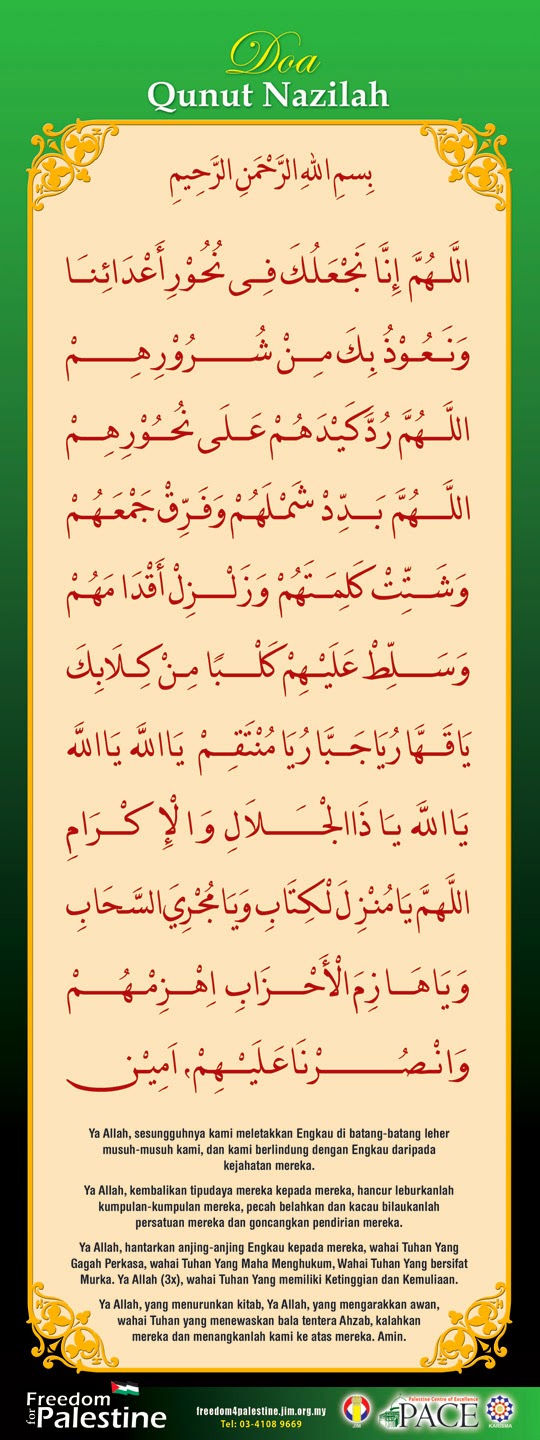 Doa
Qunut Nazilah
بِسمِ اللهِ الرَّحْمَنِ الرَّحِيمِ
اللَّهُمَّ إِنَّا نَجْعَلُكَ فِى نُحُوْرِ أَعْدَائِنَا
وَنَعُوْذُ بِكَ مِنْ شُرُوْرِهِمْ
اللَّهُمَّ رُدَّ كَيْدَهُمْ عَلَى نُحُوْرِهِمْ
اللَّهُمَّ بَدِّدْ شَمْلَهُمْ وَفَرِّقْ جَمْعَهُمْ
وَشَتِّتْ كَلِمَتَهُمْ وَزَلْزِلْ أَقْدَامَهُمْ
وَسَلِّطْ عَلَيْهِمْ كَلْبًا مِنْ كِلَابِكَ
يَا قَهَّارُ يَا جَبَّارُ يَا مُنْتَقِمْ يَا اللَّه يَا اللَّه
يَا اللَّه يَا ذَا الْجَلَالِ وَالْإِكْرَامِ
اللهمَّ يَا مُنْزِلَ لْكِتَابِ وَيَا مُجْرِيَ السَّحَابِ
وَيَا هَازِمَ الْأَحْزَابِ اِهْزِمْهُمْ
وَانْصُرْنَا عَلَيْهِمْ، اَمِيْن
Ya Allah, sesungguhnya kami meletakkan Engkau di batang-batang leher
musuh-musuh kami, dan kami berlindung dengan Engkau daripada
kejahatan mereka.
Ya Allah, kembalikan tipudaya mereka kepada mereka, hancur leburkanlah
kumpulan-kumpulan mereka, pecah belahkan dan kacau bilaukanlah
persatuan mereka dan goncangkan pendirian mereka.
Ya Allah, hantarkan anjing-anjing Engkau kepada mereka, wahai Tuhan Yang
Gagah Perkasa, wahai Tuhan Yang Maha Menghukum, Wahai Tuhan Yang bersifat
Murka. Ya Allah (3x), wahai Tuhan Yang memiliki Ketinggian dan Kemuliaan.
Ya Allah, yang menurunkan kitab, Ya Allah, yang mengarakkan awan,
wahai Tuhan yang menewaskan bala tentera Ahzab, kalahkan
mereka dan menangkanlah kami ke atas mereka. Amin.
Freedom
for Palestine
freedom4palestine.jim.org.my
Tel: 03-4108 9669
JIM
Palestine Centre of Excellence
PACE
KARISMA